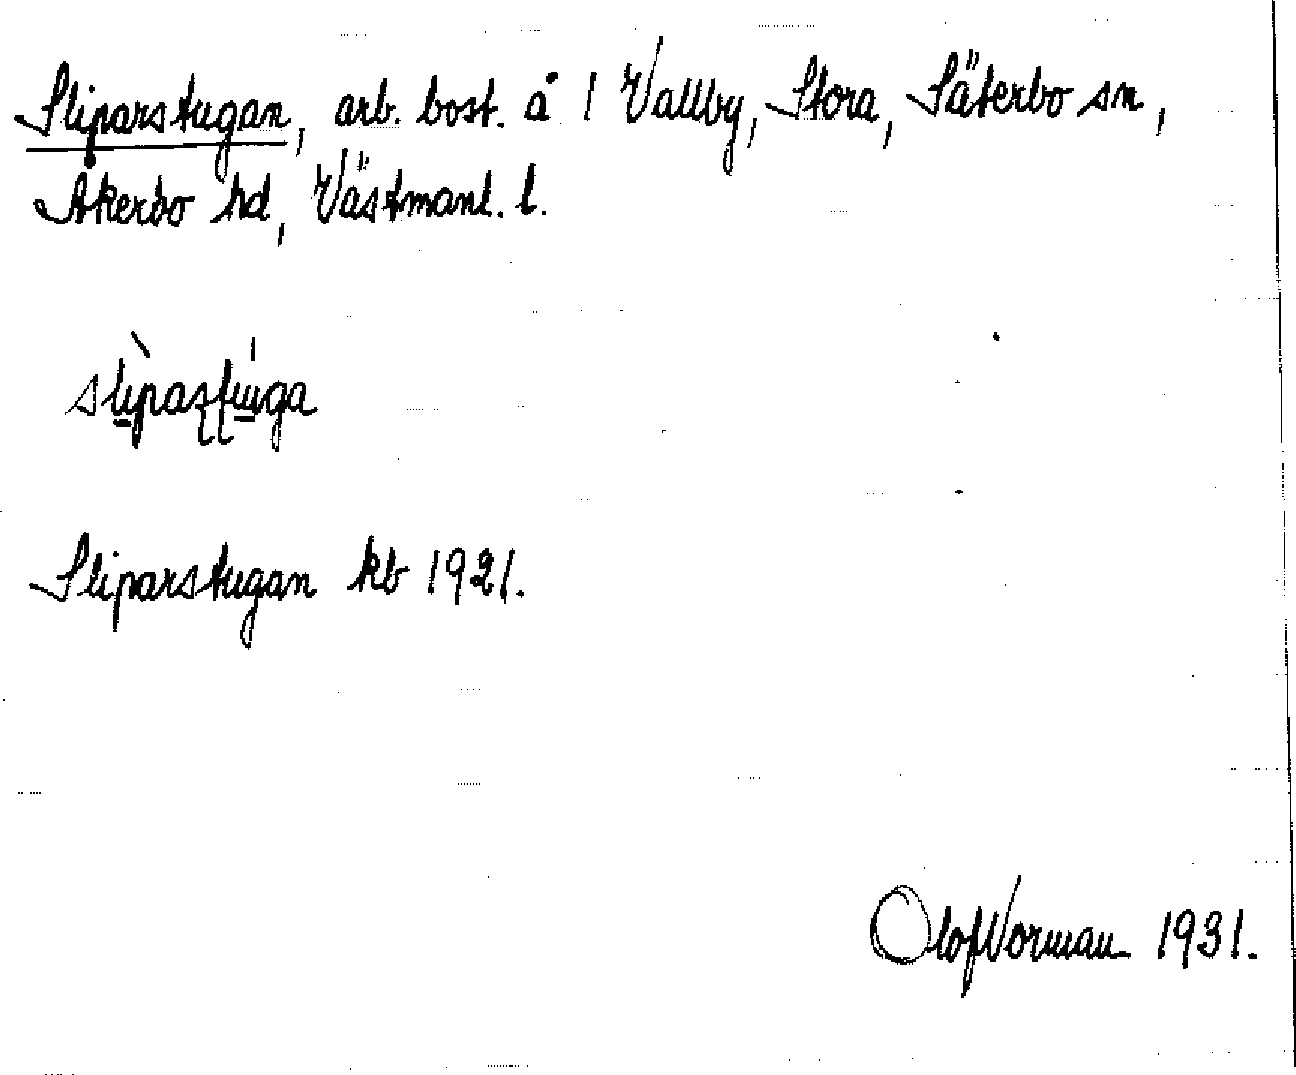 Sliparstugan, arb. bost. å 1 Vallby, Stora, Säterbo sn,
Åkerbo hd, Västmanl. l.
Sliparstugan kb 1921.
Olof Norman 1931.